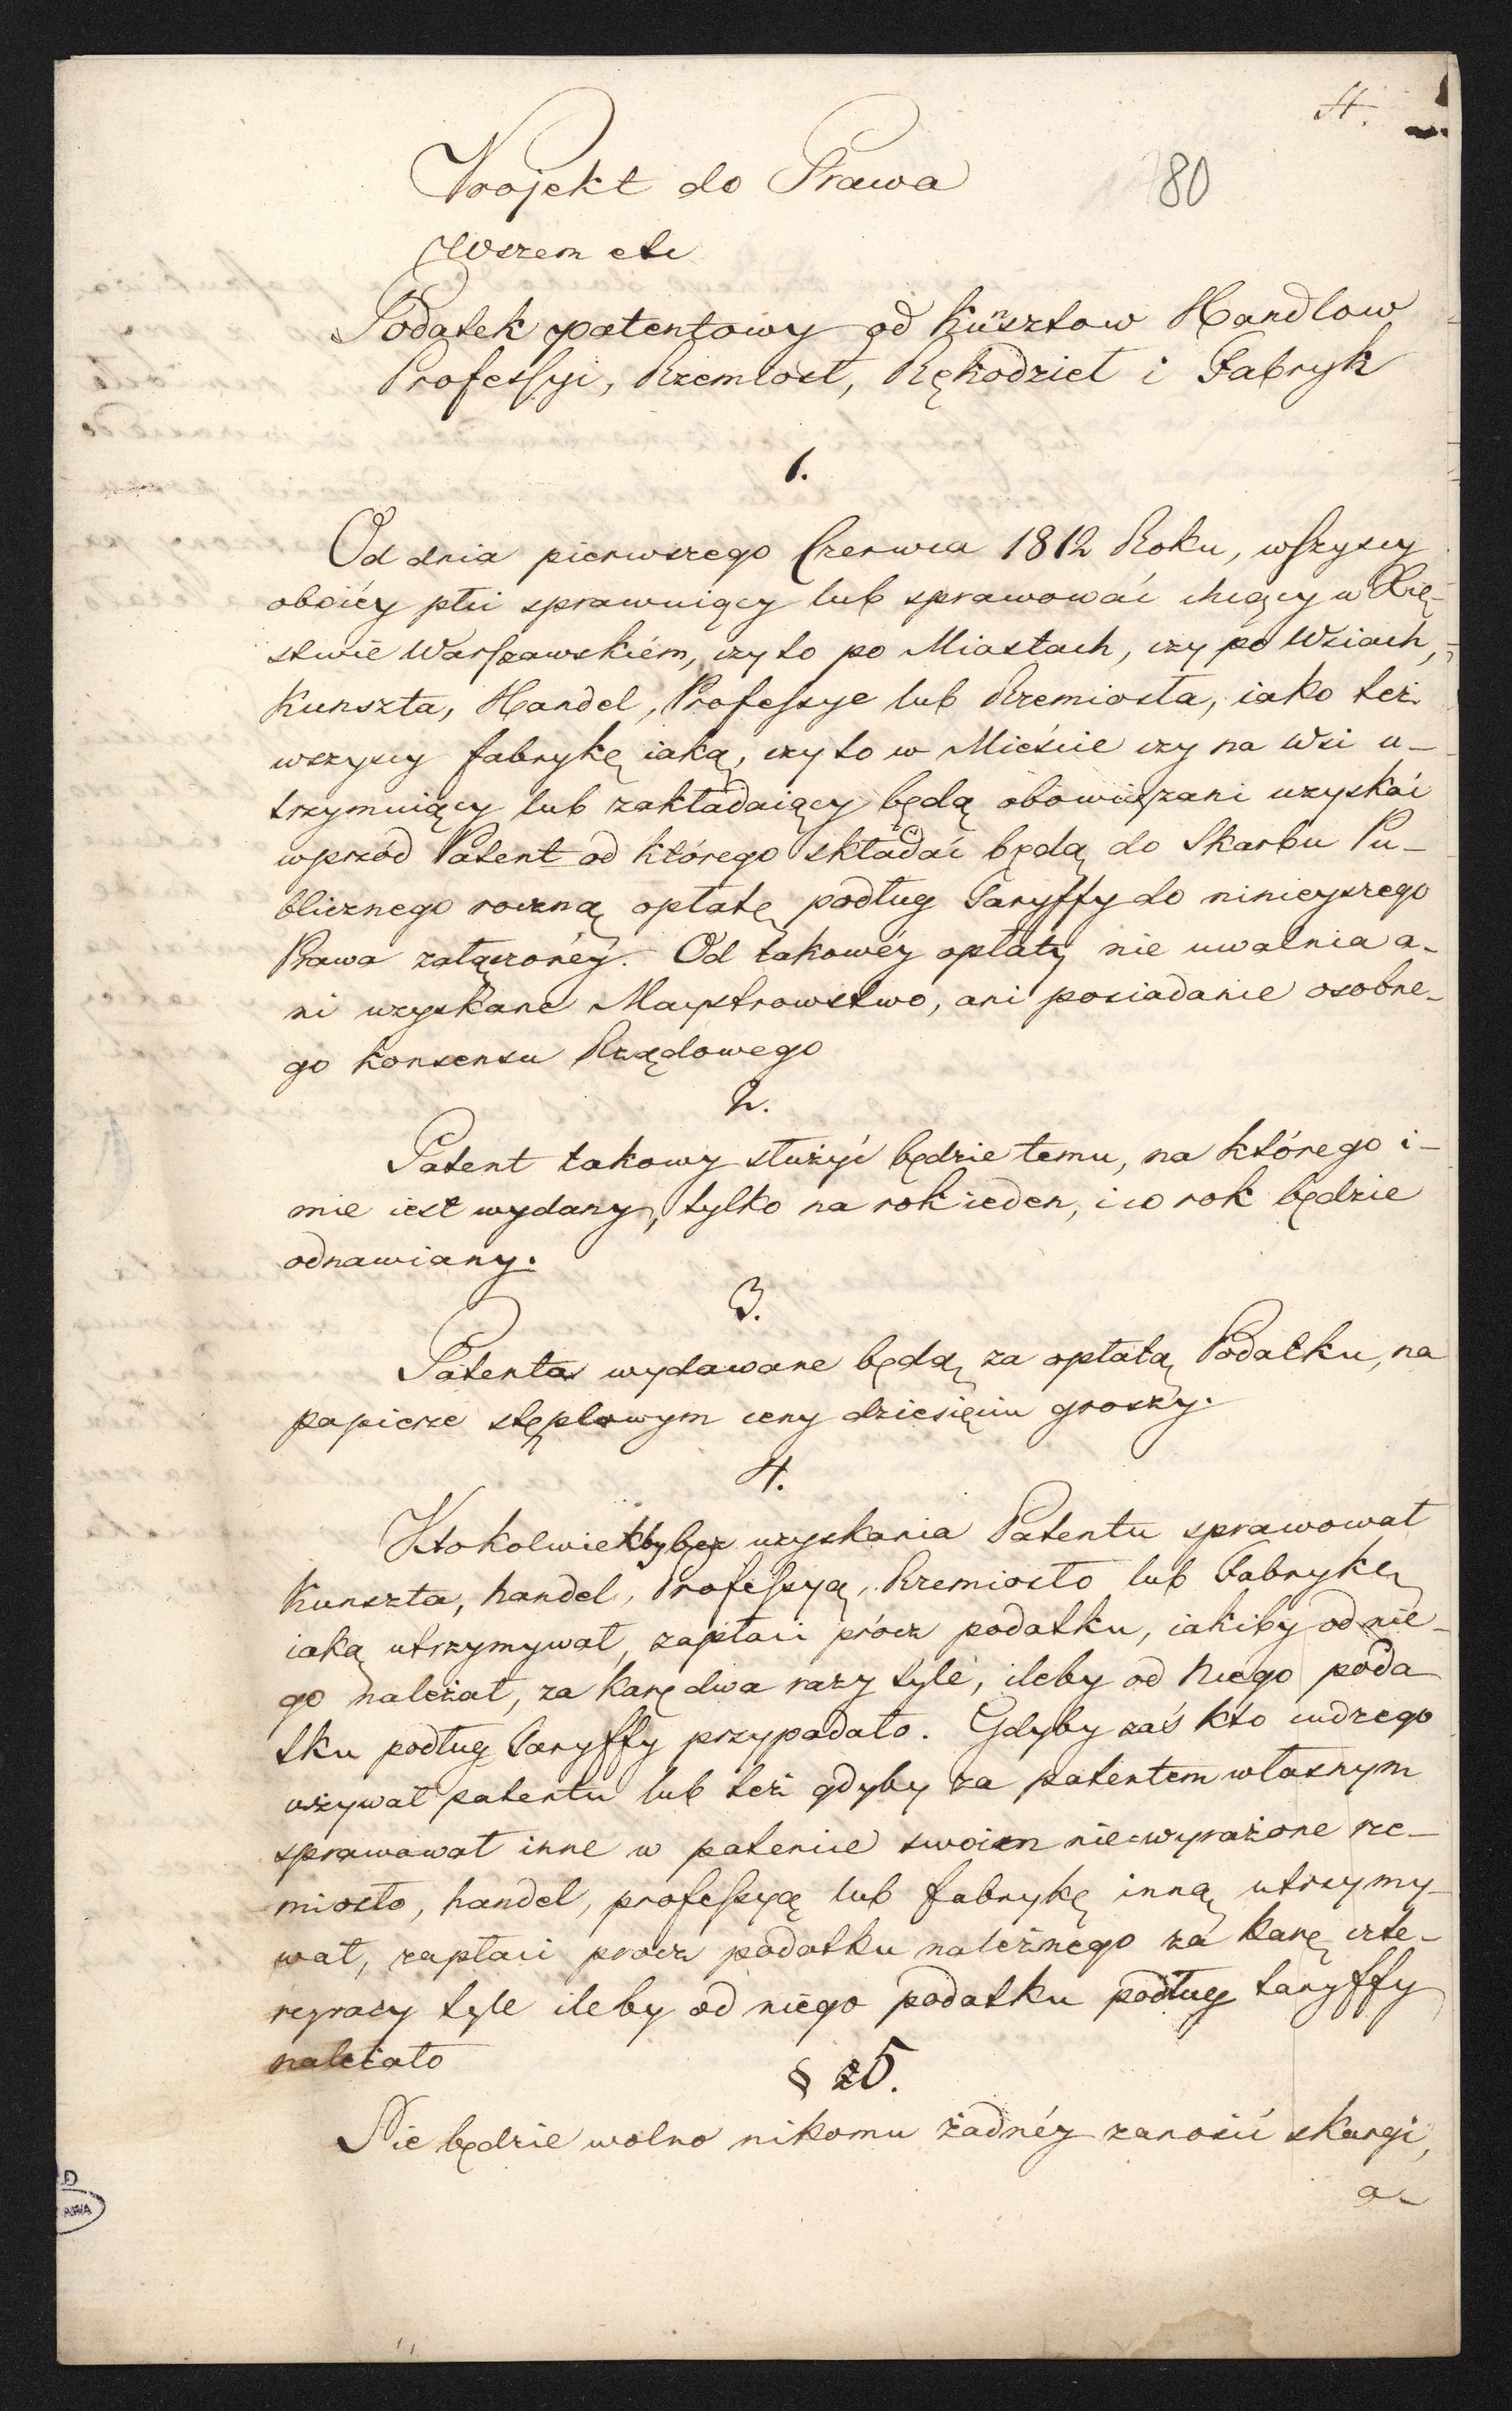 4.
80
Projekt do Prawa
Wszem etc
Podatek patentowy od Kunsztow Handlow
Professyi, Rzemiosł, Rękodzieł i Fabryk
1.
Od dnia pierwszego Czerwca 1812 Roku, wszyscy
oboiéy płci sprawuiący lub sprawować chcący w Xię-
stwie Warszawskiém, czy to po Miastach, czy po Wsiach,
Kunszta, Handel, Professye lub Rzemiosła, iako też
wszyscy fabrykę iaką, czy to w Mieście czy na Wsi u-
trzymuiący lub zakładaiący będą obowiązani uzyskać
wprzód Patent od którego składać będą do Skarbu Pu-
blicznego roczną opłatę podług Taryffy do ninieyszego
Prawa załączonéy. Od takowéy opłaty nie uwalnia a-
ni uzyskane Maystrowstwo, ani posiadanie osobne-
go konsensu Rządowego
2.
Patent takowy służyć będzie temu, na którego i-
mie iest wydany, tylko na rok ieden, i co rok będzie
odnawiany.
3.
Patenta wydawane będą za opłatą Podatku, na
papierze stęplowym ceny dziesięciu groszy.
4.
Ktokolwiekby bez uzyskania Patentu sprawował
Kunszta, handel, Professyą, Rzemiosło lub Fabrykę
iaką utrzymywał, zapłaci prócz podatku, iakiby od nie-
go należał, za karę dwa razy tyle, ileby od niego poda
tku podług Taryffy przypadało. Gdyby zaś kto cudzego
używał patentu lub też gdyby za patentem własnym
sprawował inne w patencie swoim niewyrażone rze-
miosło, handel, professyą lub fabrykę inną utrzymy-
wał, zapłaci procz podatku należnego za karę czte-
ryrazy tyle ileby od niego podatku podług taryffy
należało
§ 5.
Nie będzie wolno nikomu żadnéy zanosić skargi,
a-